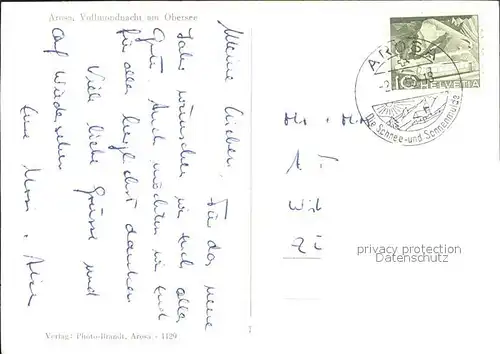 Arosa, Vollmondnacht am Obersee
Meine Lieben, Für das neue
Jahr wünschen wir Euch alles
Gute. Auch möchten wir Euch
für alles herzlichst danken.
Viele liebe Grüsse und
auf Wiedersehen
Eure
Verlag: Photo-Brandt, Arosa - 1129
AROSA
10 HELVETIA
Die Schnee- und Sonnenmulde
privacy protection
Datenschutz